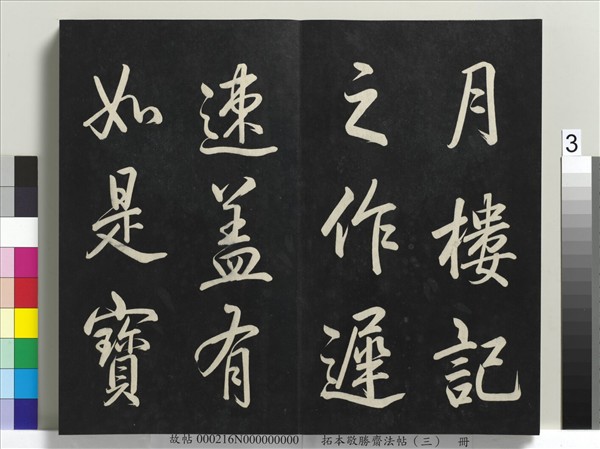 月樓記
之作遲
速盖有
如是寶
3
故帖 000216N000000000 拓本敬勝齋法帖（三） 冊